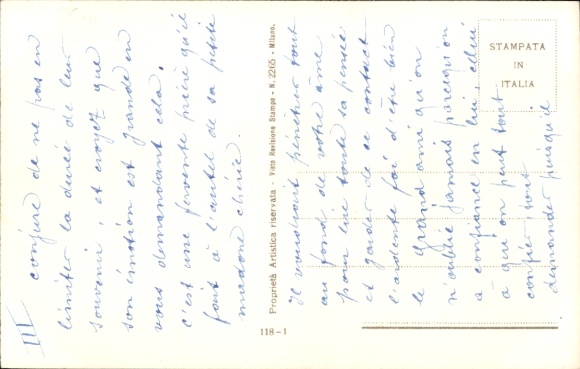 III
conjure de ne pas en
limiter la durée de leur
souvenir, et croyez que
son émotion est grande en
vous demandant cela,
c'est une fervente prière qu'il
fait à l'autel de sa petite
madone chérie.
Proprietà Artistica riservata - Visto Revisione Stampa - N. 2265 - Milano.
118-1
Il voudrait pénétrer tout
au fond de votre âme
pour lire toute sa pensée
et garder de ce contact
l'ardente foi d'être bien
le grand ami qu'on
n'oublie jamais parcequ'on
a confiance en lui, celui
à qui on peut tout
confier, tout
demander puisqu'il
STAMPATA
IN
ITALIA